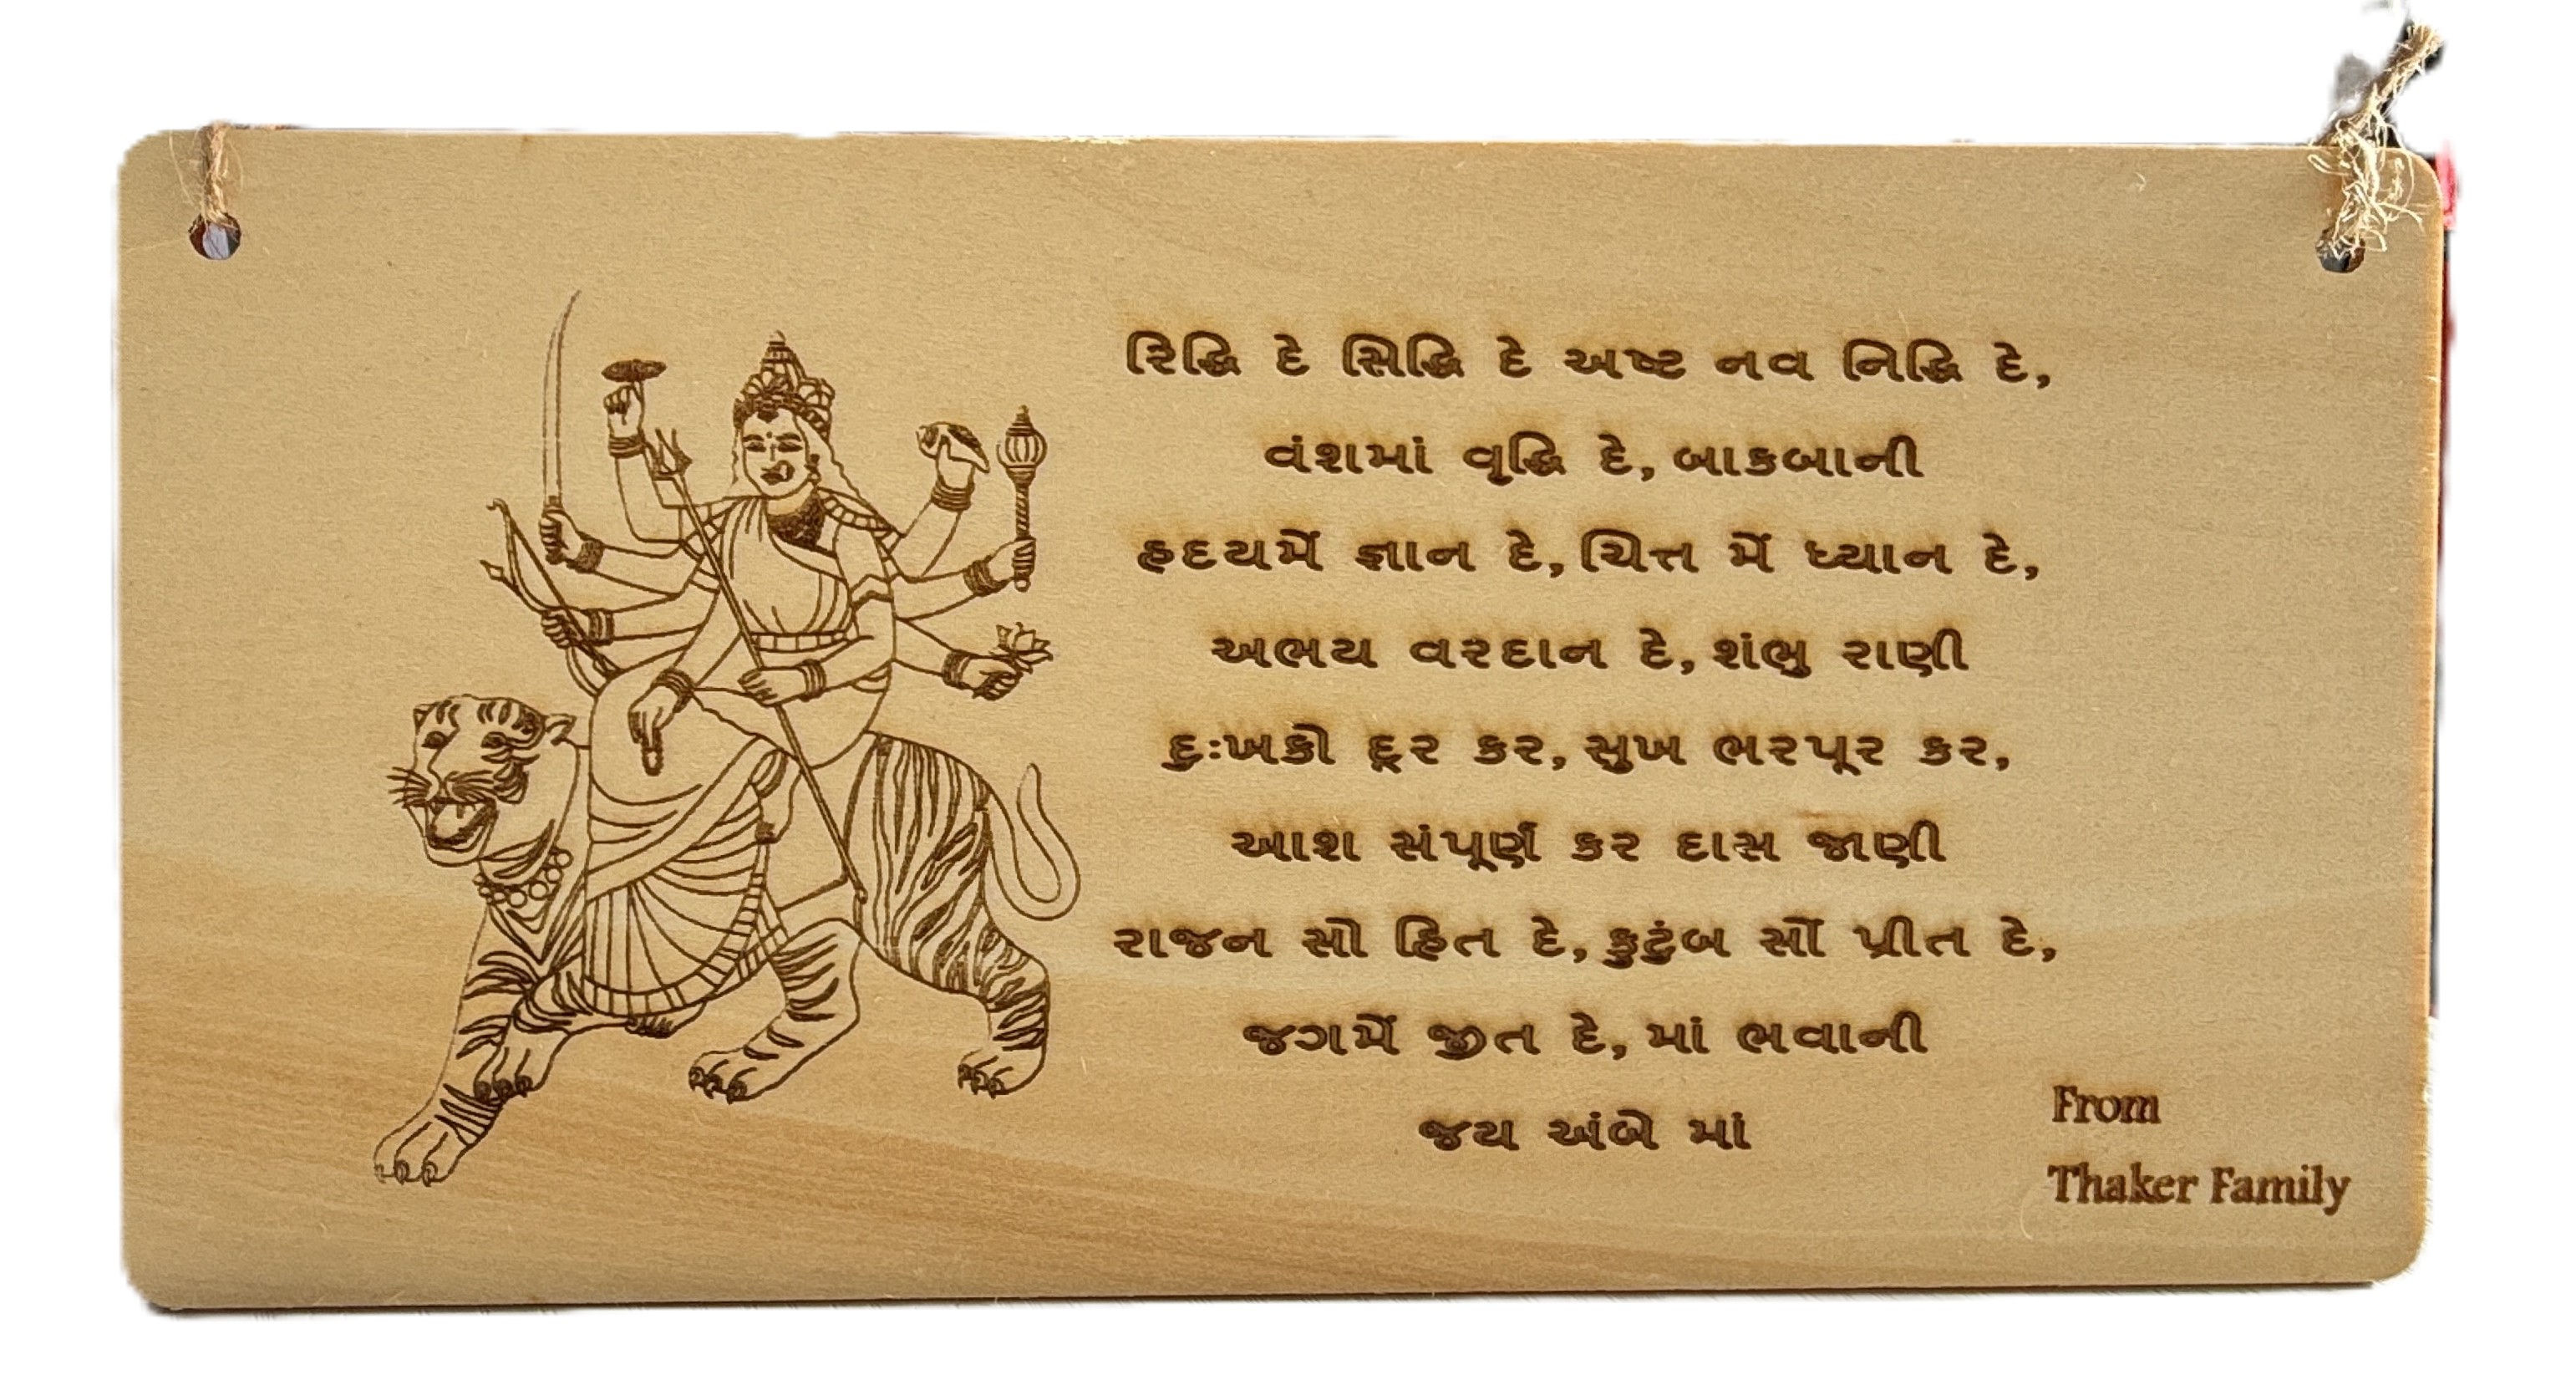 રિદ્ધિ દે સિદ્ધિ દે અષ્ટ નવ નિદ્ધિ દે,
વંશમાં વૃદ્ધિ દે, બાકબાની
હદયમેં જ્ઞાન દે, ચિત્ત મેં ધ્યાન દે,
અભય વરદાન દે, શંભુ રાણી
દુઃખકો દૂર કર, સુખ ભરપૂર કર,
આશ સંપૂર્ણ કર દાસ જાણી
રાજન સો હિત દે, કુટુંબ સોં પ્રીત દે,
જગમેં જીત દે, માં ભવાની
જય અંબે માં
From
Thaker Family